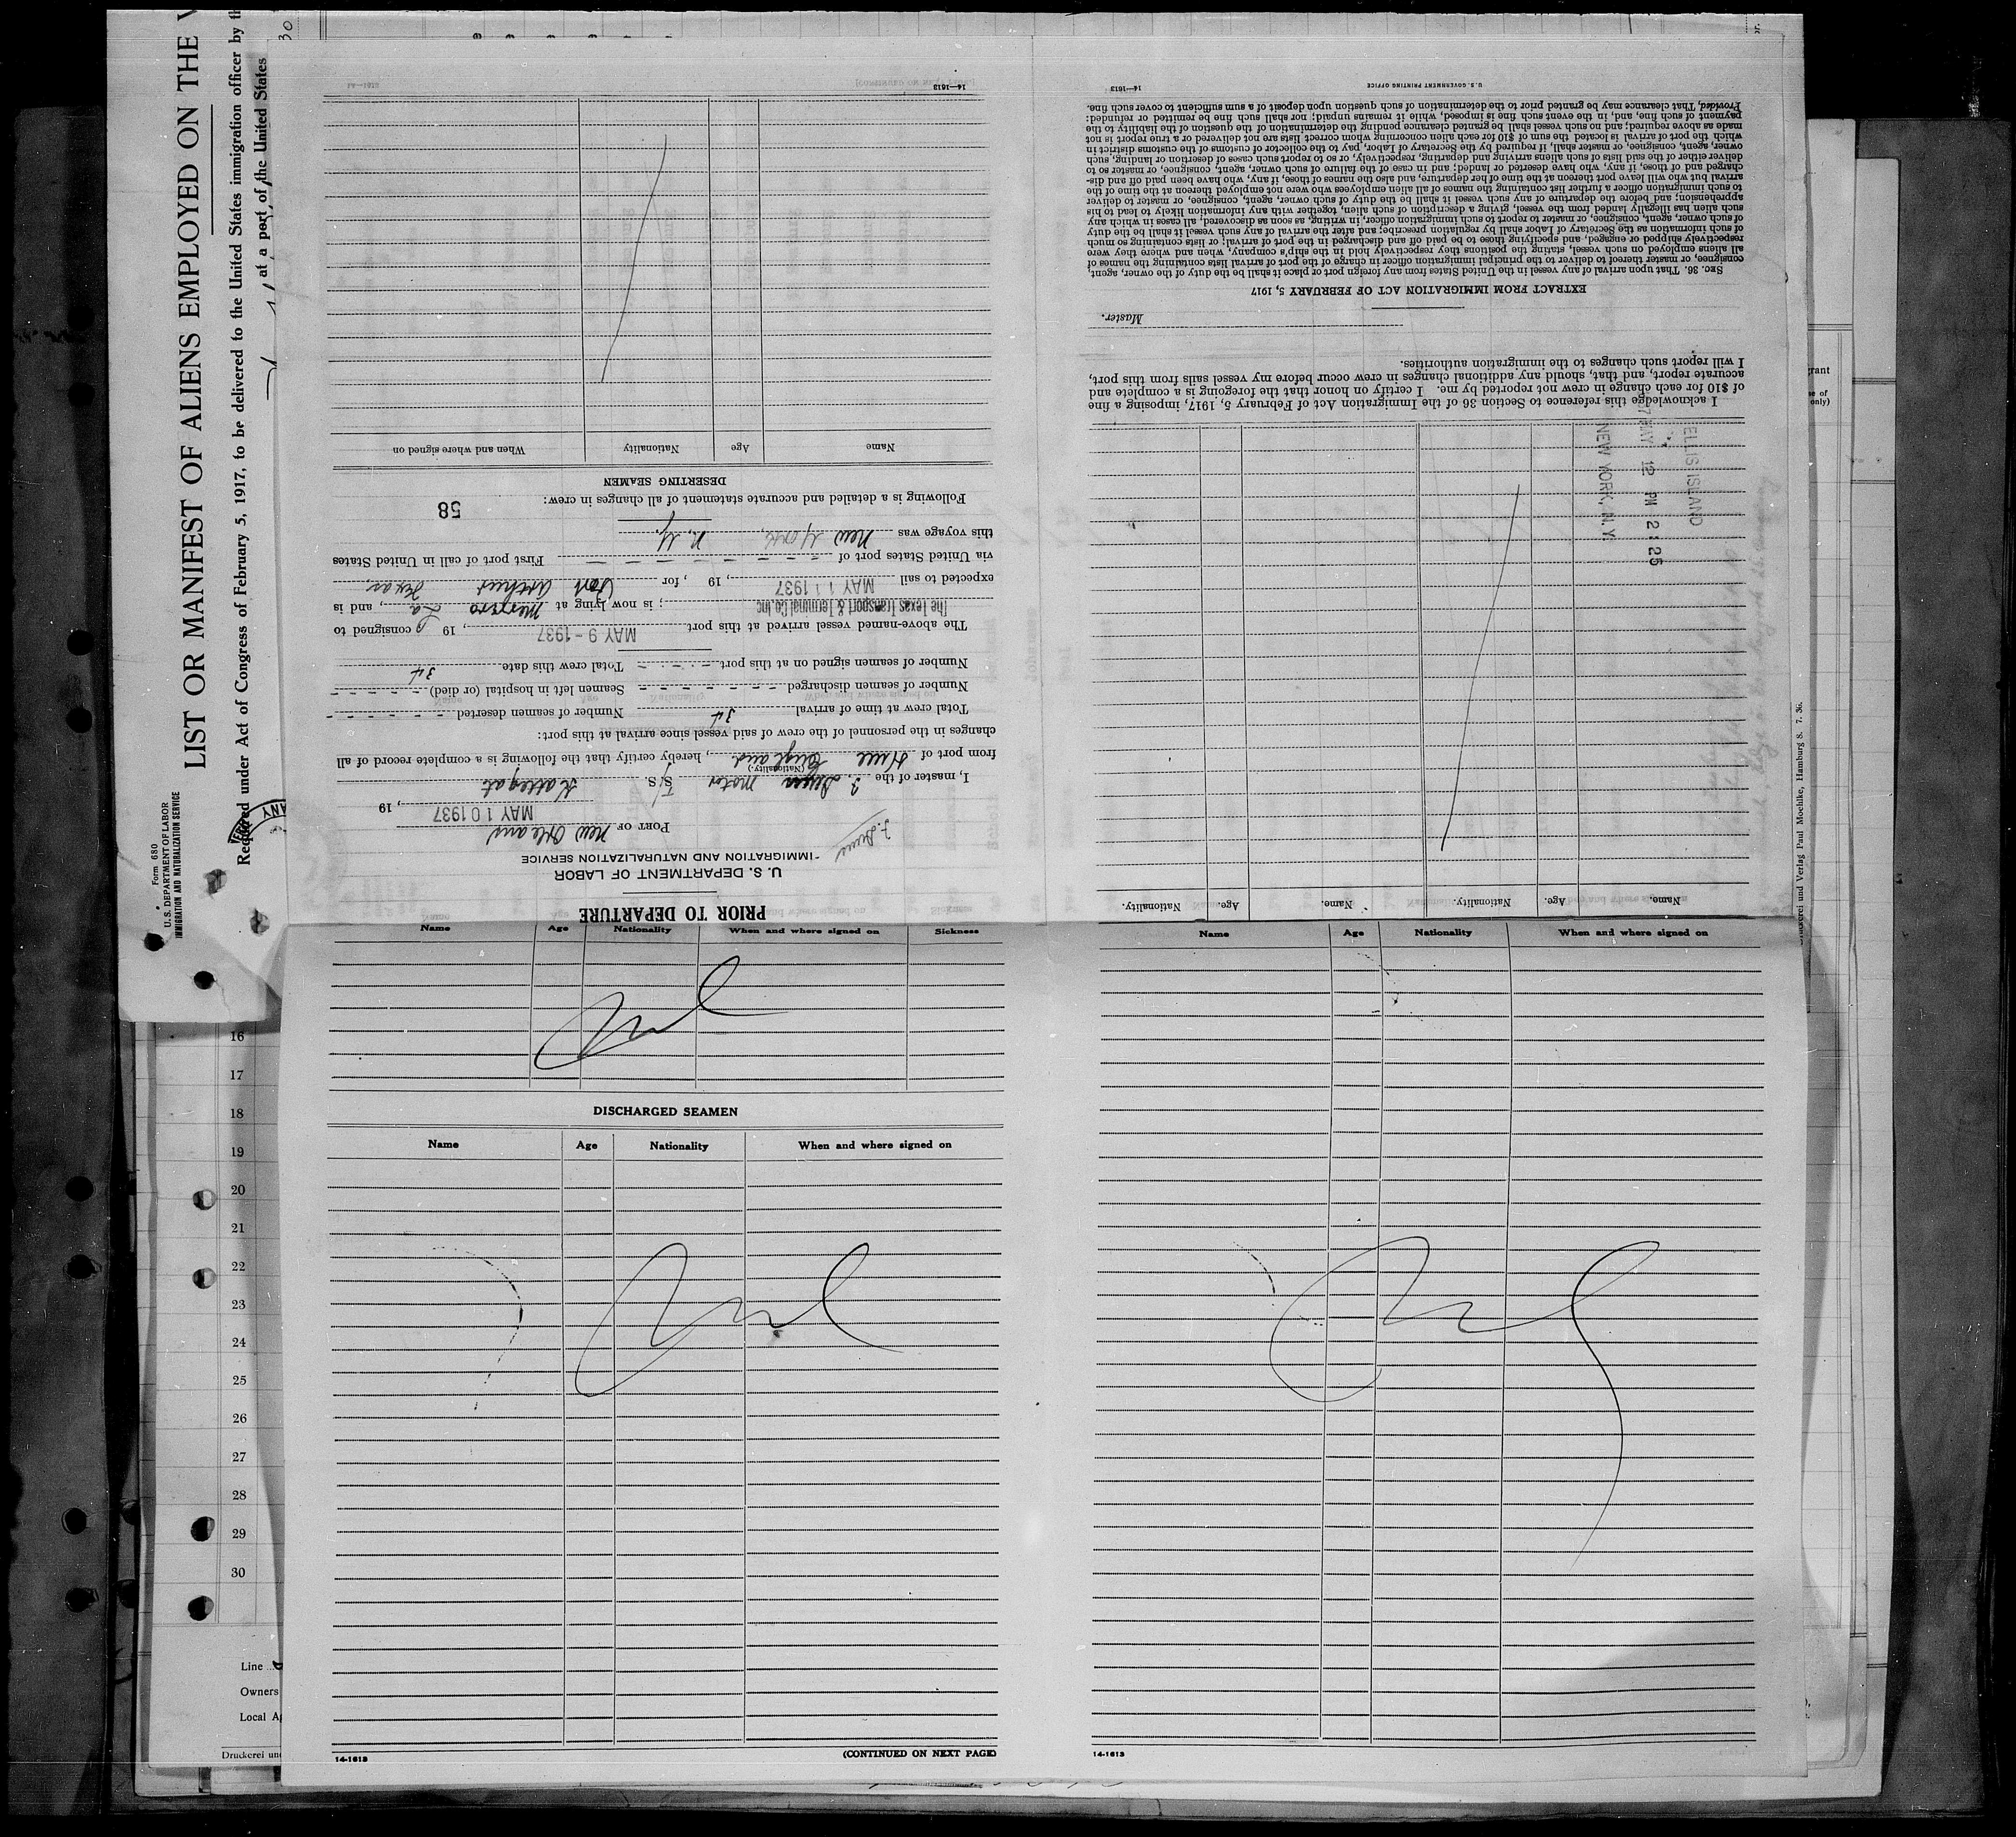 Form 680
U. S. DEPARTMENT OF LABOR
IMMIGRATION AND NATURALIZATION SERVICE
LIST OR MANIFEST OF ALIENS EMPLOYED ON THE
Required under Act of Congress of February 5, 1917, to be delivered to the United States immigration officer by
at a port of the United States
30
ANY
PRIOR TO DEPARTURE
U. S. DEPARTMENT OF LABOR
IMMIGRATION AND NATURALIZATION SERVICE
PORT OF New Orleans
MAY 10 1937, 19
I, master of the motor S/S Kattegat
(Nationality)
from port of Hull England, hereby certify that the following is a complete record of all
changes in the personnel of the crew of said vessel since arrival at this port:
Total crew at time of arrival 34 Number of seamen deserted - - - - - -
Number of seamen discharged - - - - - - Seamen left in hospital (or died) - - - - -
Number of seamen signed on at this port - - - - Total crew this date 34
The above-named vessel arrived at this port MAY 9 - 1937, 19 consigned to
The Texas Transport & Terminal Co. Inc; is now lying at La., and is
expected to sail MAY 11 1937, 19 , for Port Arthur Texas.
via United States port of - - - - - - - - First port of call in United States
this voyage was New York, N. Y.
Following is a detailed and accurate statement of all changes in crew:
58
DESERTING SEAMEN
Name Age Nationality When and where signed on
14—1613
Name, Age. Nationality. Name. Age. Nationality.
ELLIS ISLAND
MAY 12 PM 2:25
NEW YORK, N.Y.
I acknowledge this reference to Section 36 of the Immigration Act of February 5, 1917, imposing a fine
of $10 for each change in crew not reported by me. I certify on honor that the foregoing is a complete and
accurate report, and that, should any additional changes in crew occur before my vessel sails from this port,
I will report such changes to the immigration authorities.
Master.
EXTRACT FROM IMMIGRATION ACT OF FEBRUARY 5, 1917
SEC. 36. That upon arrival of any vessel in the United States from any foreign port or place it shall be the duty of the owner, agent,
consignee, or master thereof to deliver to the principal immigration officer in charge of the port of arrival lists containing the names of
all aliens employed on such vessel, stating the positions they respectively hold in the ship's company, when and where they were
respectively shipped or engaged, and specifying those to be paid off and discharged in the port of arrival; or lists containing so much
of such information as the Secretary of Labor shall by regulation prescribe; and after the arrival of any such vessel it shall be the duty
of such owner, agent, consignee, or master to report to such immigration officer, in writing, as soon as discovered, all cases in which any
such alien has illegally landed from the vessel, giving a description of such alien, together with any information likely to lead to his
apprehension; and before the departure of any such vessel it shall be the duty of such owner, agent, consignee, or master to deliver
to such immigration officer a further list containing the names of all alien employees who were not employed thereon at the time of the
arrival but who will leave port thereon at the time of her departure, and also the names of those, if any, who have been paid off and dis-
charged and of those, if any, who have deserted or landed; and in case of the failure of such owner, agent, consignee, or master so to
deliver either of the said lists of such aliens arriving and departing, respectively, or so to report such cases of desertion or landing, such
owner, agent, consignee, or master shall, if required by the Secretary of Labor, pay to the collector of customs of the customs district in
which the port of arrival is located the sum of $10 for each alien concerning whom correct lists are not delivered or a true report is not
made as above required; and no such vessel shall be granted clearance pending the determination of the question of the liability to the
payment of such fine, and, in the event such fine is imposed, while it remains unpaid; nor shall such fine be remitted or refunded:
Provided, That clearance may be granted prior to the determination of such question upon deposit of a sum sufficient to cover such fine.
U. S. GOVERNMENT PRINTING OFFICE 14—1613
Name Age Nationality When and where signed on Sickness
DISCHARGED SEAMEN
Name Age Nationality When and where signed on
14-1613 (CONTINUED ON NEXT PAGE)
Name Age Nationality When and where signed on
14-1613
16
17
18
19
20
21
22
23
24
25
26
27
28
29
30
Line
Owners
Local A
Druckerei und
Druckerei und Verlag Paul Moehlke, Hamburg 8. 7. 36.
grant
only)